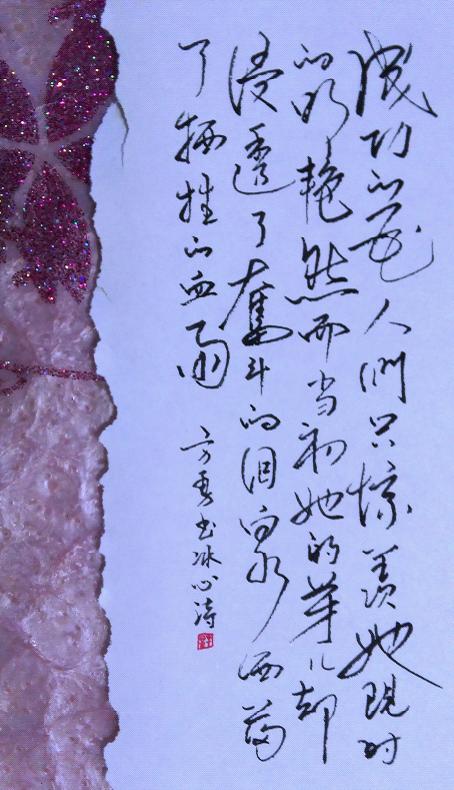 成功的花人們只惊羡她現时
的明艳然而当初她的芽儿却
浸透了奮斗的泪泉洒遍
了牺牲的血雨
方秀书冰心诗